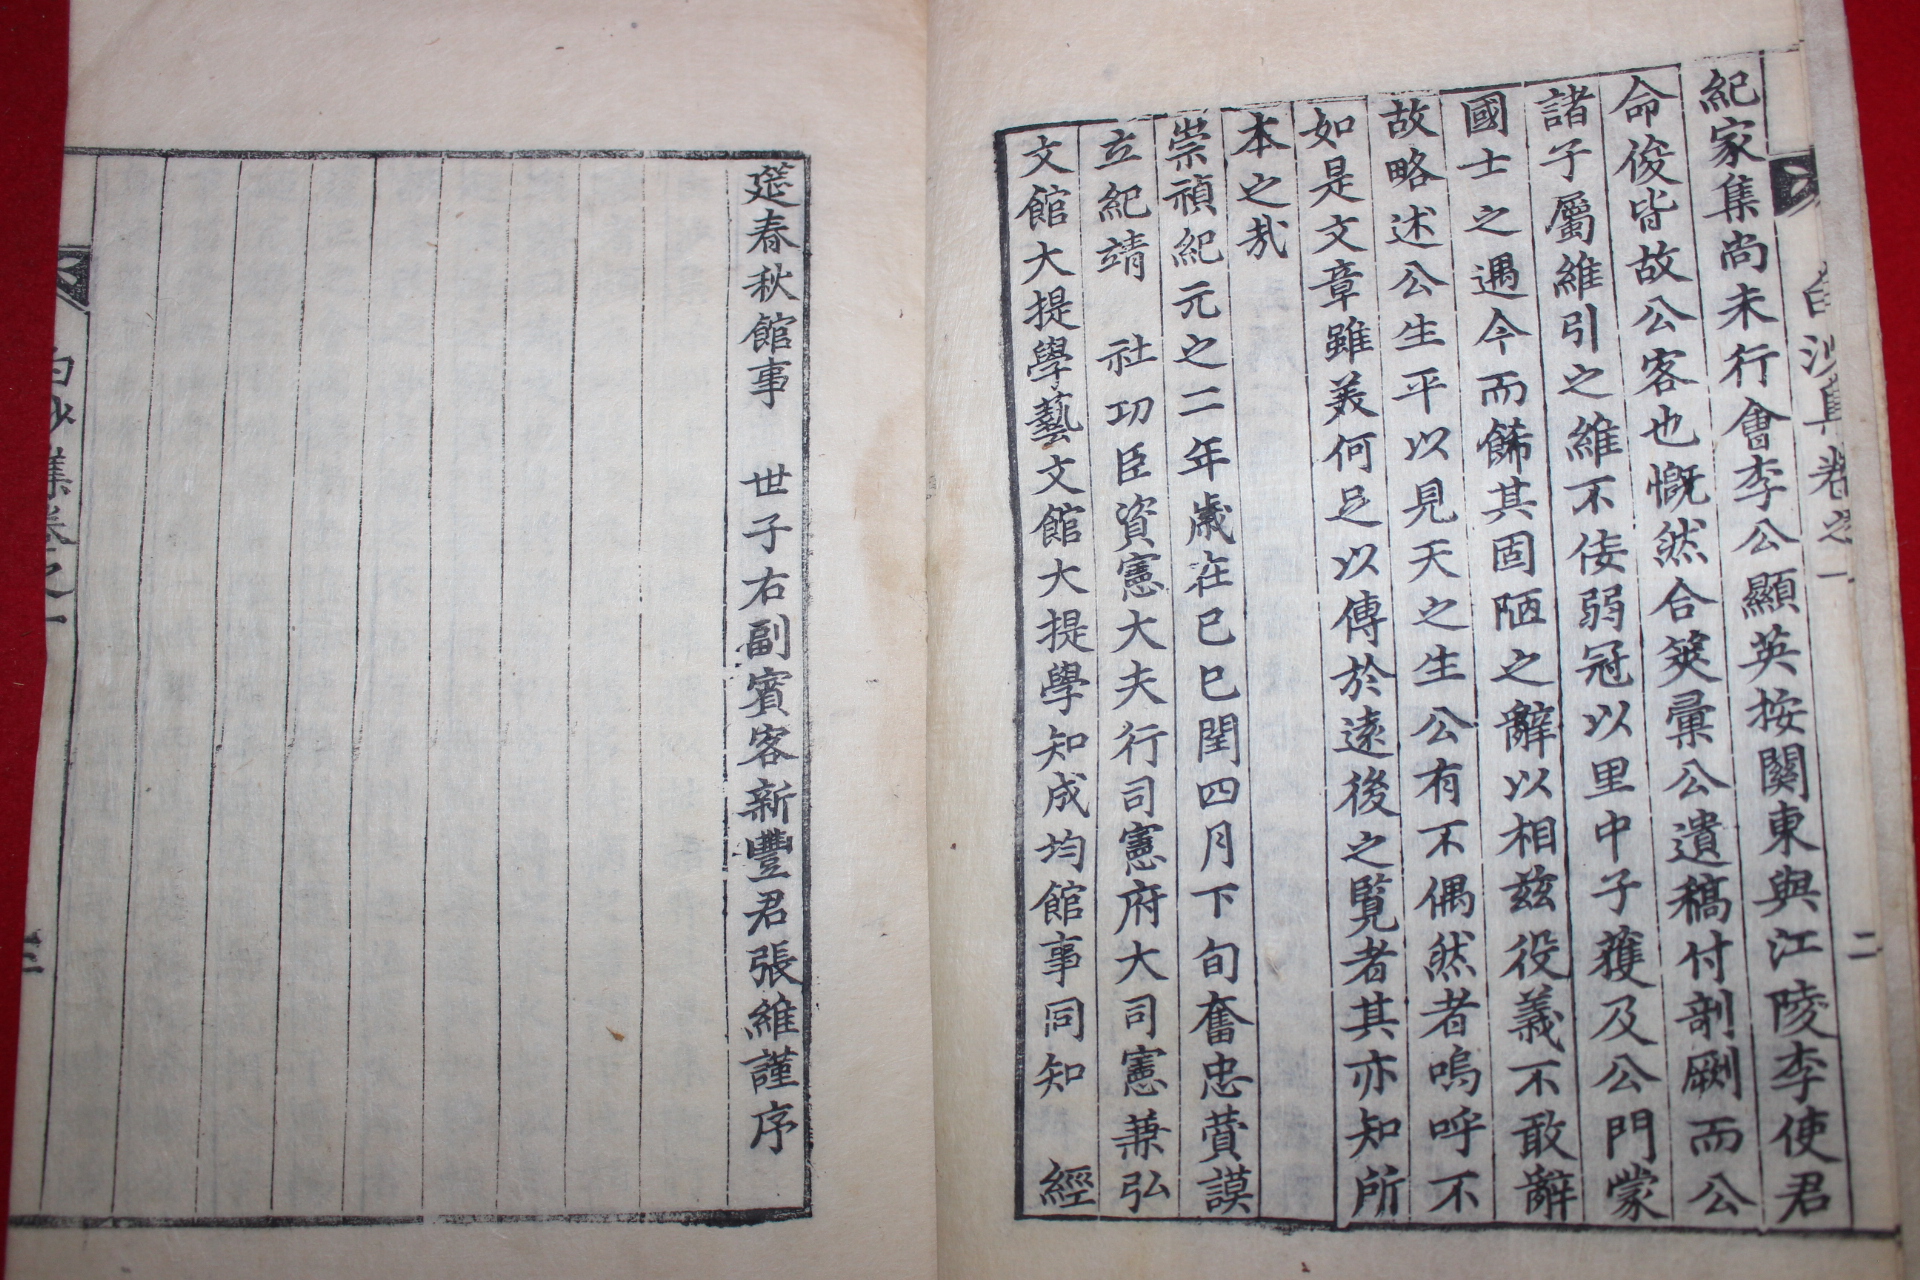 白沙集卷之一
二
紀家集尚未行會李公顯英按關東與江陵李使君
命俊皆故公客也慨然合筴彙公遺稿付剞劂而公
諸子屬維引之維不佞弱冠以里中子獲及公門蒙
國士之遇今而餙其固陋之辭以相玆役義不敢辭
故略述公生平以見天之生公有不偶然者嗚呼不
如是文章雖美何足以傳於遠後之覽者其亦知所
本之哉
崇禎紀元之二年歲在己巳閏四月下旬奮忠贊謨
立紀靖 社功臣資憲大夫行司憲府大司憲兼弘
文館大提學藝文館大提學知成均館事同知 經
筵春秋館事 世子右副賓客新豐君張維謹序
白沙集卷之一
三